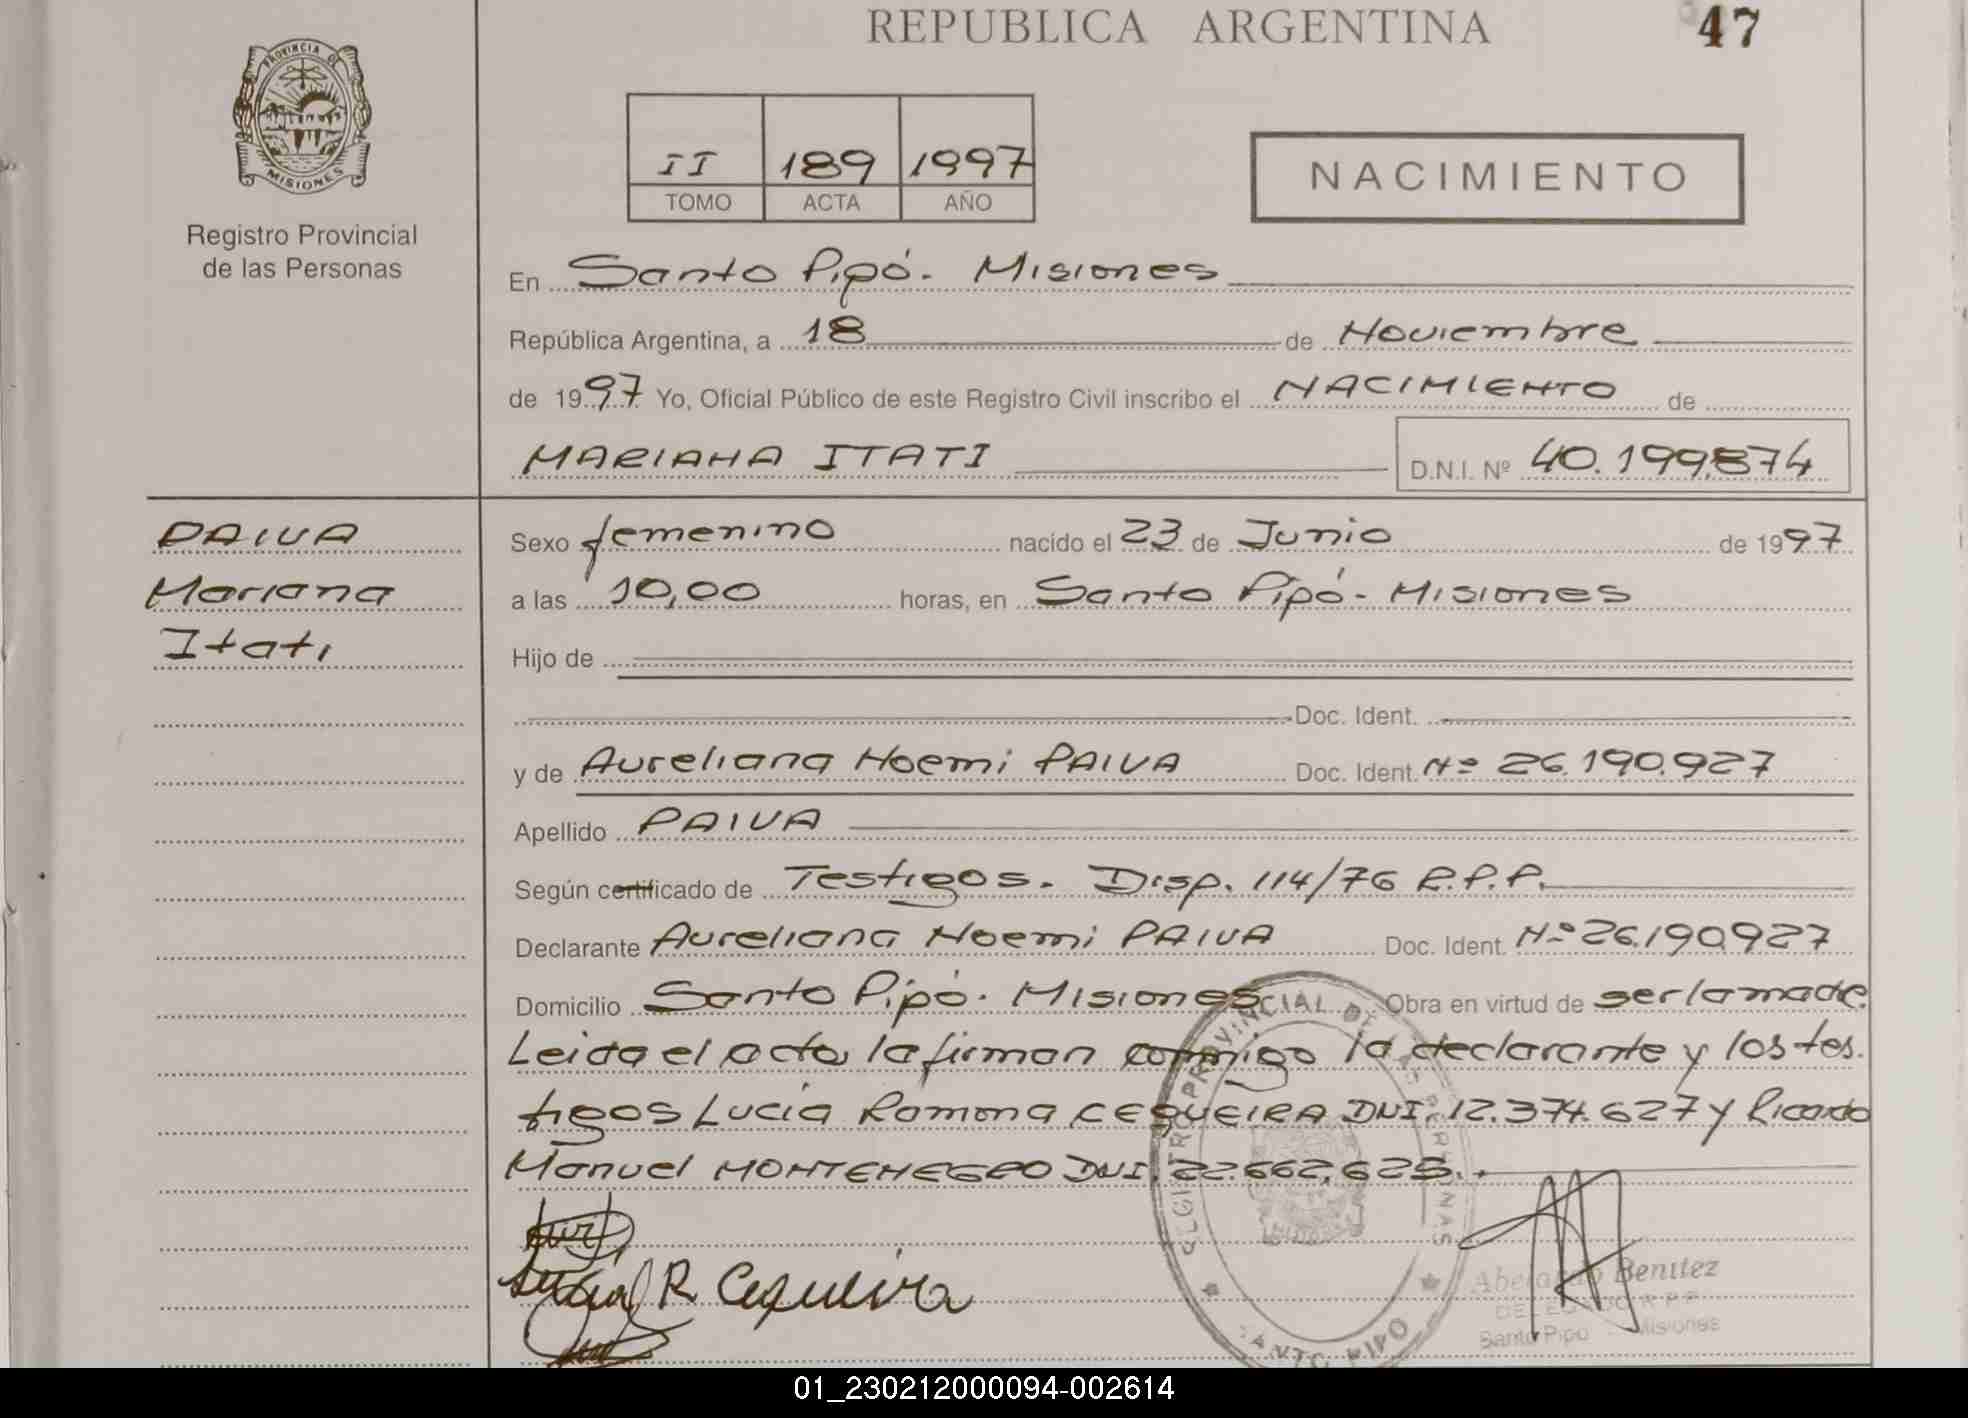 REPUBLICA ARGENTINA
47
PROVINCIA DE
MISIONES
Registro Provincial
de las Personas
II 189 1997
TOMO ACTA AÑO
NACIMIENTO
En Santo Pipó - Misiones
República Argentina, a 18 de Noviembre
de 1997 Yo, Oficial Público de este Registro Civil inscribo el NACIMIENTO de
MARIANA ITATI D.N.I. Nº 40.199.874
PAIVA
Mariana
Itati
Sexo femenino nacido el 23 de Junio de 1997
a las 10,00 horas, en Santo Pipó - Misiones
Hijo de
Doc. Ident.
y de Aureliana Noemi PAIVA Doc. Ident. Nº 26.190.927
Apellido PAIVA
Según certificado de Testigos. Disp. 114/76 R.P.P.
Declarante Aureliana Noemi PAIVA Doc. Ident. Nº 26.190.927
Domicilio Santo Pipó - Misiones Obra en virtud de ser la madre.
Leida el acta la firman conmigo la declarante y los tes.
tigos Lucia Ramona CEQUEIRA DNI. 12.374.627 y Ricardo
Manuel MONTENEGRO DNI. 22.662.625.
R Cequeira
REGISTRO PROVINCIAL DE LAS PERSONAS
SANTO PIPO
Abelardo Benitez
DELEGADO R P P
Santo Pipo - Misiones
01_230212000094-002614